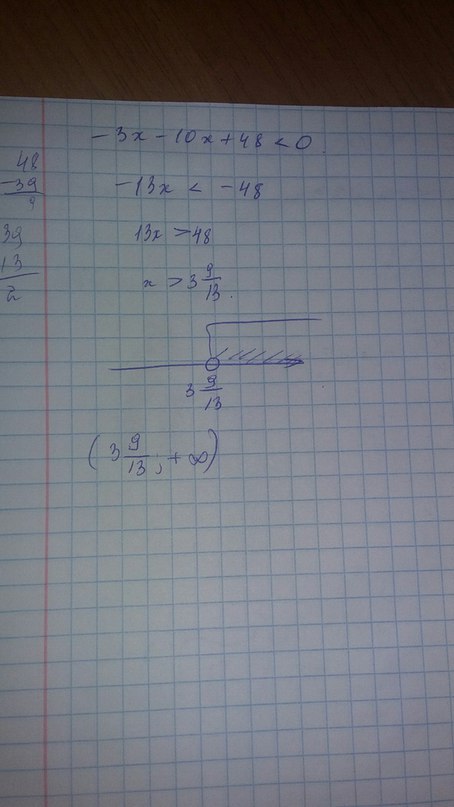 -3x - 10x + 48 < 0.
-13x < -48
13x > 48
x > 3 9/13.
3 9/13
(3 9/13; +∞)
48
-39
9
39
13
2